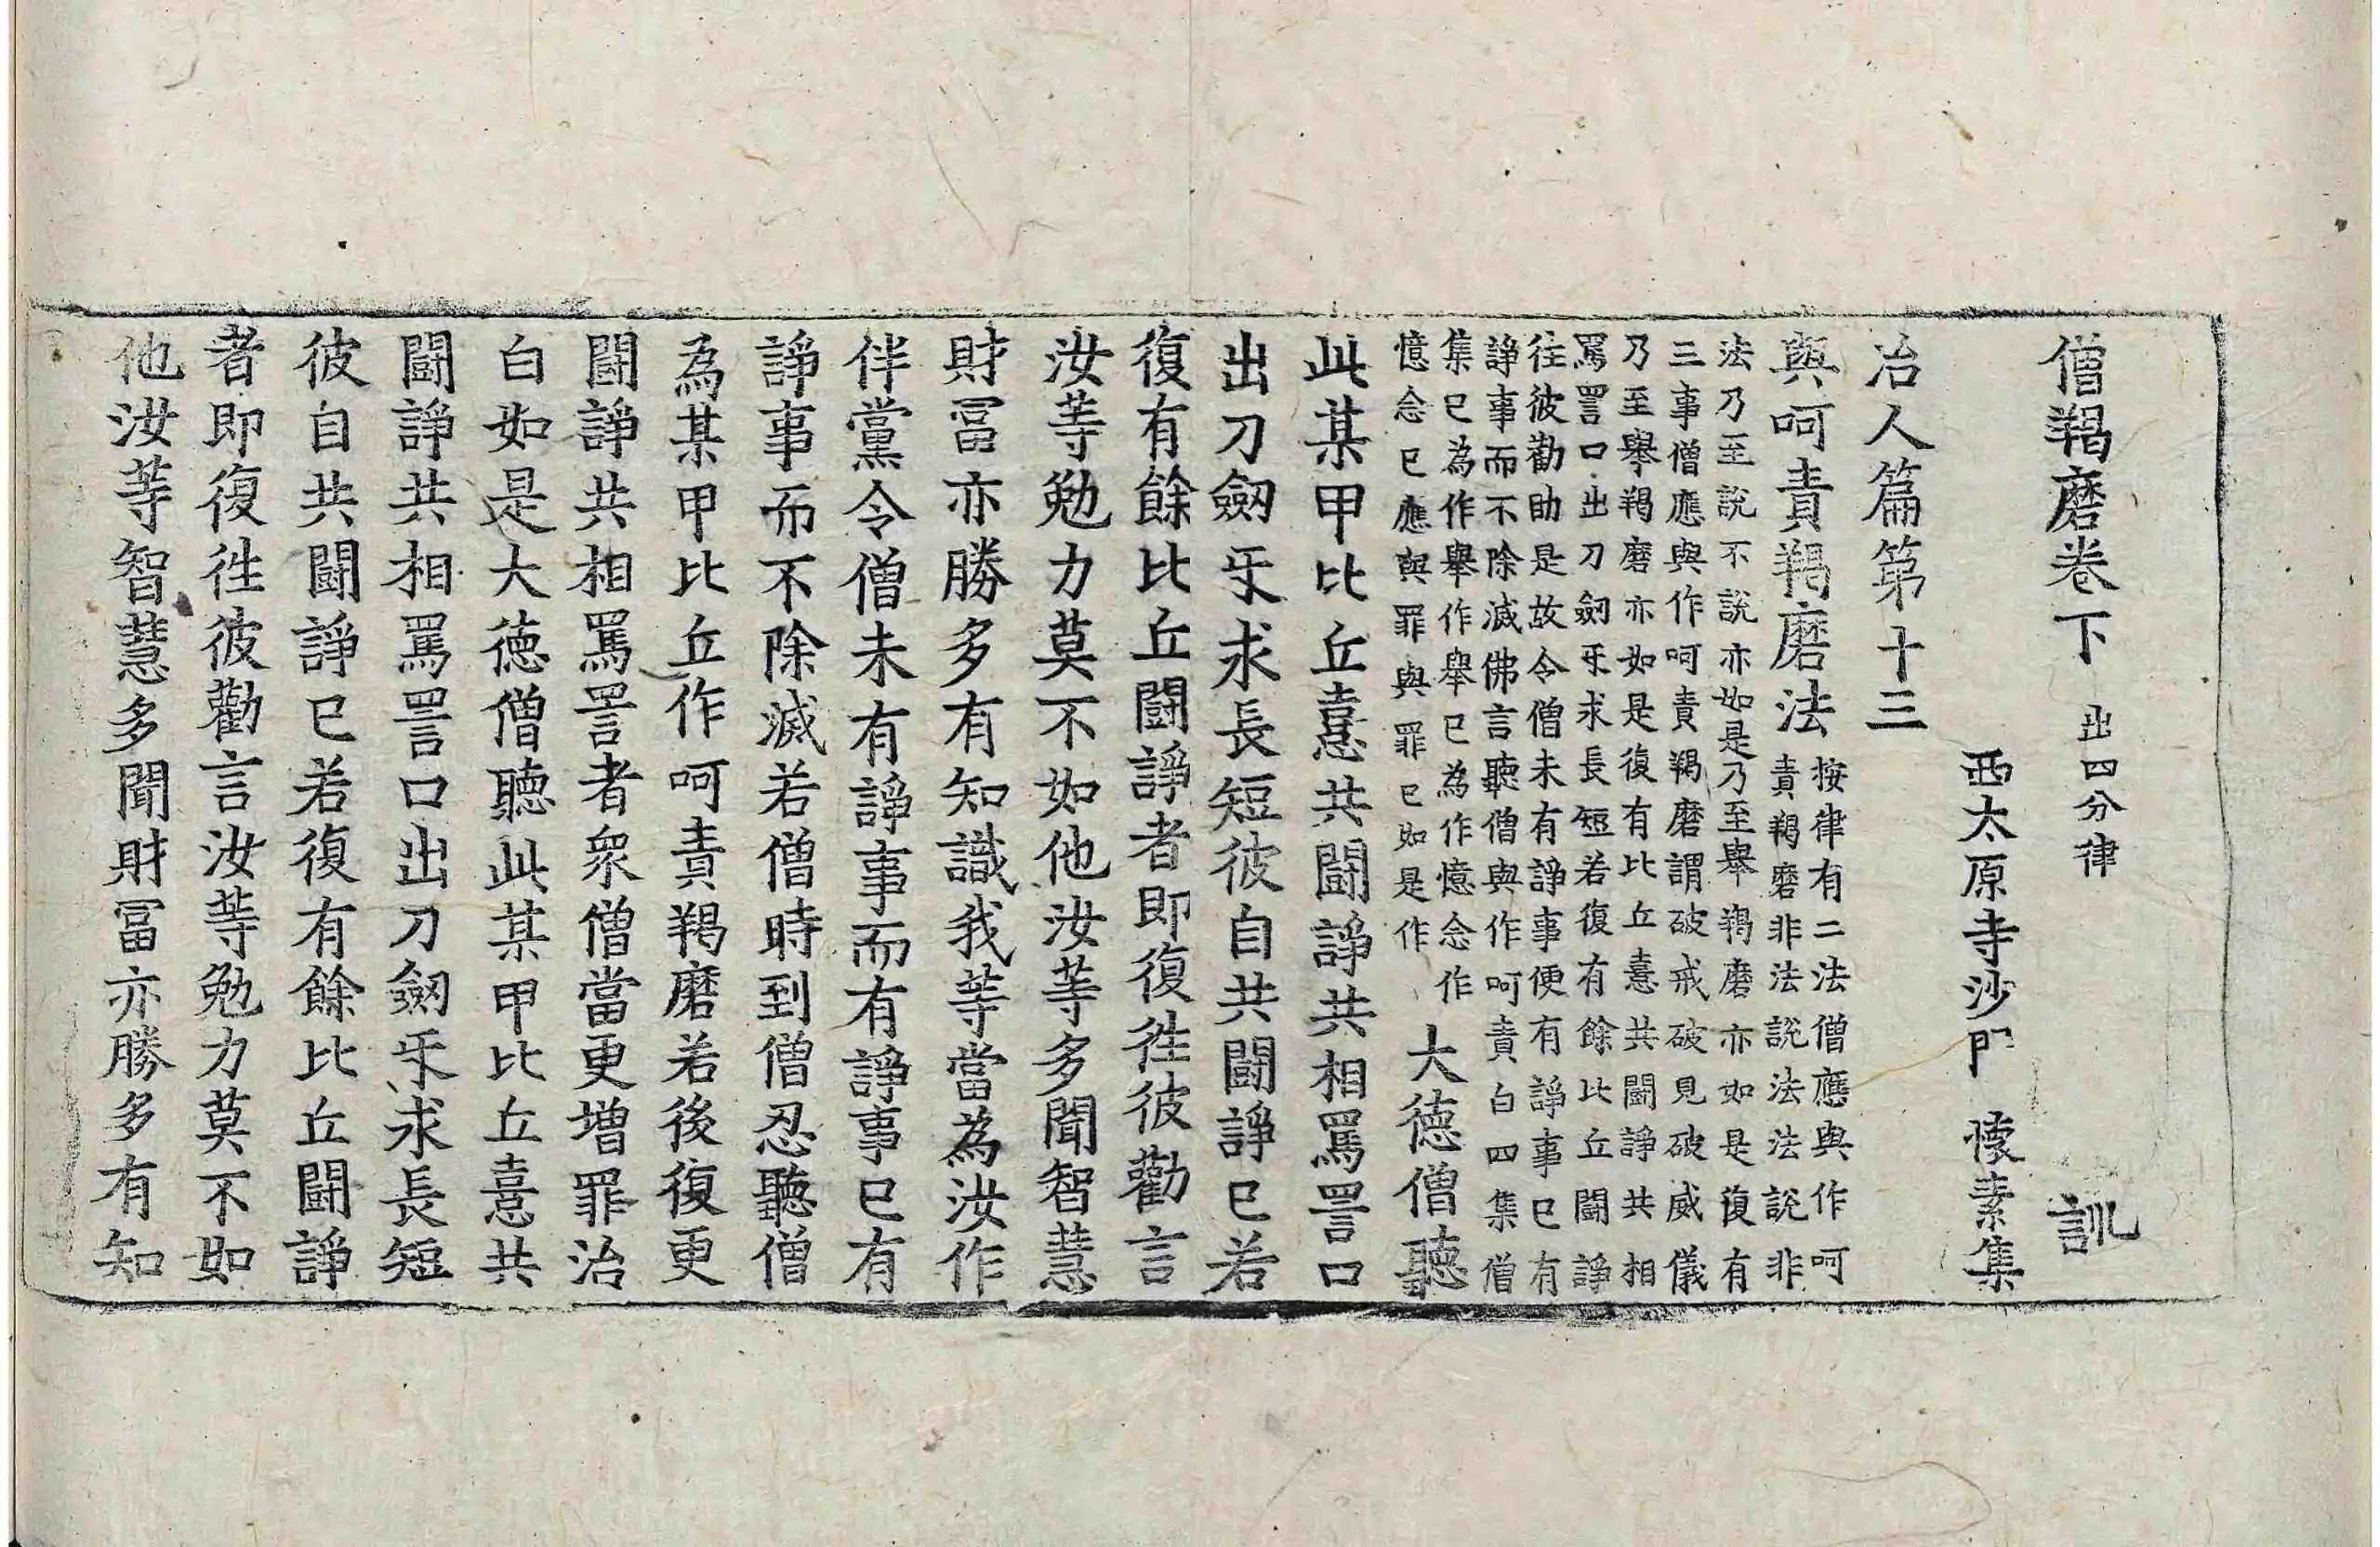 僧羯磨卷下 出四分律 訓
西太原寺沙門 懷素集
治人篇第十三
與呵責羯磨法 按律有二法僧應與作呵
責羯磨非法說法法說非
法乃至說不說亦如是乃至舉羯磨亦如是復有
三事僧應與作呵責羯磨謂破戒破見破威儀
乃至舉羯磨亦如是復有比丘憙共鬪諍共相
罵詈口出刀劒㸦求長短若復有餘比丘鬪諍
往彼勸助是故令僧未有諍事便有諍事已有
諍事而不除滅佛言聽僧與作呵責白四集僧
集已為作舉作舉已為作憶念作
憶念已應與罪與罪已如是作 大德僧聽
此某甲比丘憙共鬪諍共相罵詈口
出刀劒㸦求長短彼自共鬪諍已若
復有餘比丘鬪諍者即復往彼勸言
汝等勉力莫不如他汝等多聞智慧
財冨亦勝多有知識我等當為汝作
伴黨令僧未有諍事而有諍事已有
諍事而不除滅若僧時到僧忍聽僧
為某甲比丘作呵責羯磨若後復更
鬪諍共相罵詈者眾僧當更增罪治
白如是大德僧聽此某甲比丘憙共
鬪諍共相罵詈口出刀劒㸦求長短
彼自共鬪諍已若復有餘比丘鬪諍
者即復往彼勸言汝等勉力莫不如
他汝等智慧多聞財冨亦勝多有知